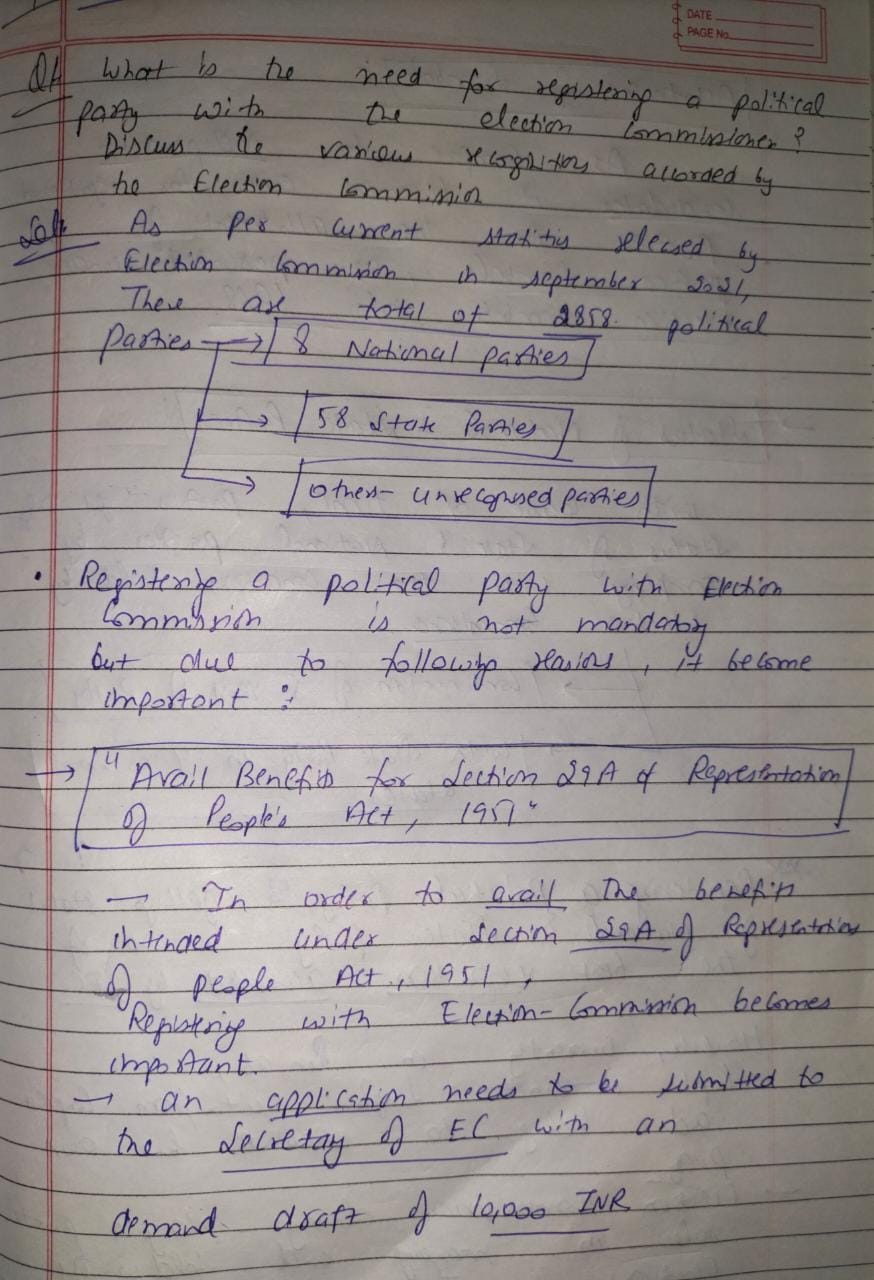 DATE
PAGE No.
Q1 What is the need for registering a political
party with the election Commissioner?
Discuss the various recognitions accorded by
the Election Commission
Sol. As per current statistics released by
Election Commission in september 2021,
There are total of 2858 political
Parties → 8 National parties
→ 58 State Parties
→ others - unrecognised parties
• Registering a political party with Election
Commission is not mandatory
but due to following reasons, it become
important :
→ "Avail Benefits for Section 29A of Representation
of People's Act, 1951"
→ In order to avail The benefits
intended under Section 29A of Representation
of people Act, 1951,
Registering with Election-Commission becomes
important.
→ an application needs to be submitted to
the Secretay of EC with an
demand draft of 10,000 INR